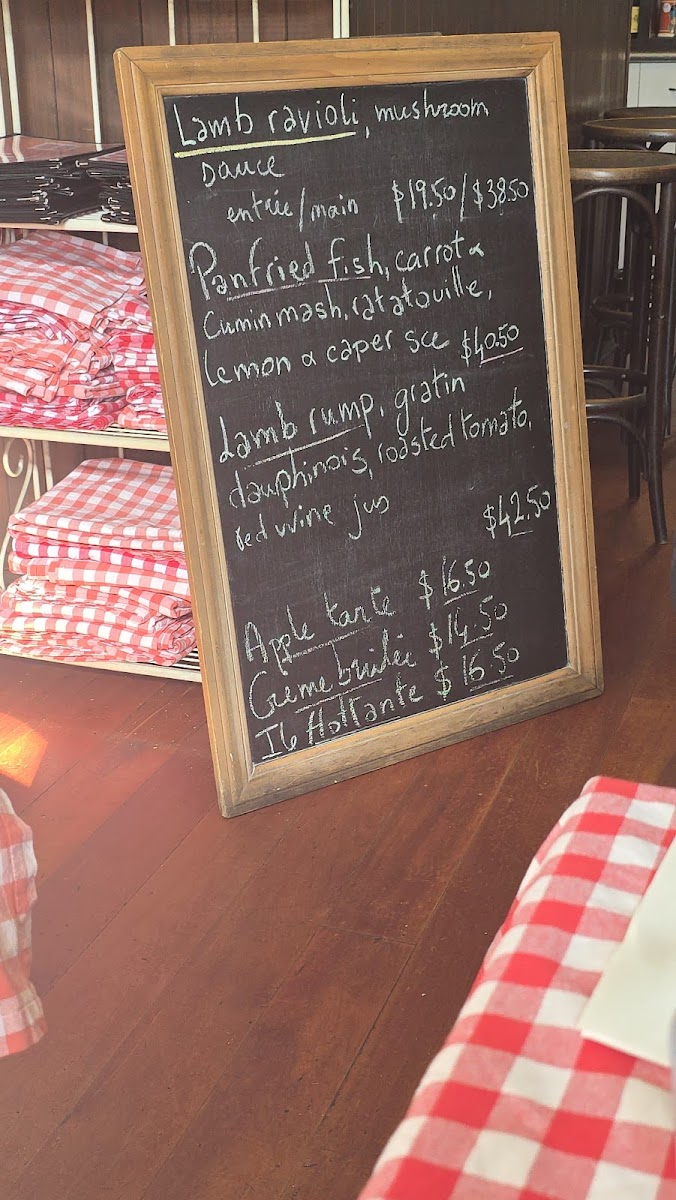 Lamb ravioli, mushroom
sauce
entrée/main $19.50/$38.50
Panfried fish, carrot &
Cumin mash, ratatouille,
lemon & caper sce $40.50
Lamb rump, gratin
dauphinois, roasted tomato,
red wine jus
$42.50
Apple tarte $16.50
Creme brulée $14.50
Ile flottante $16.50